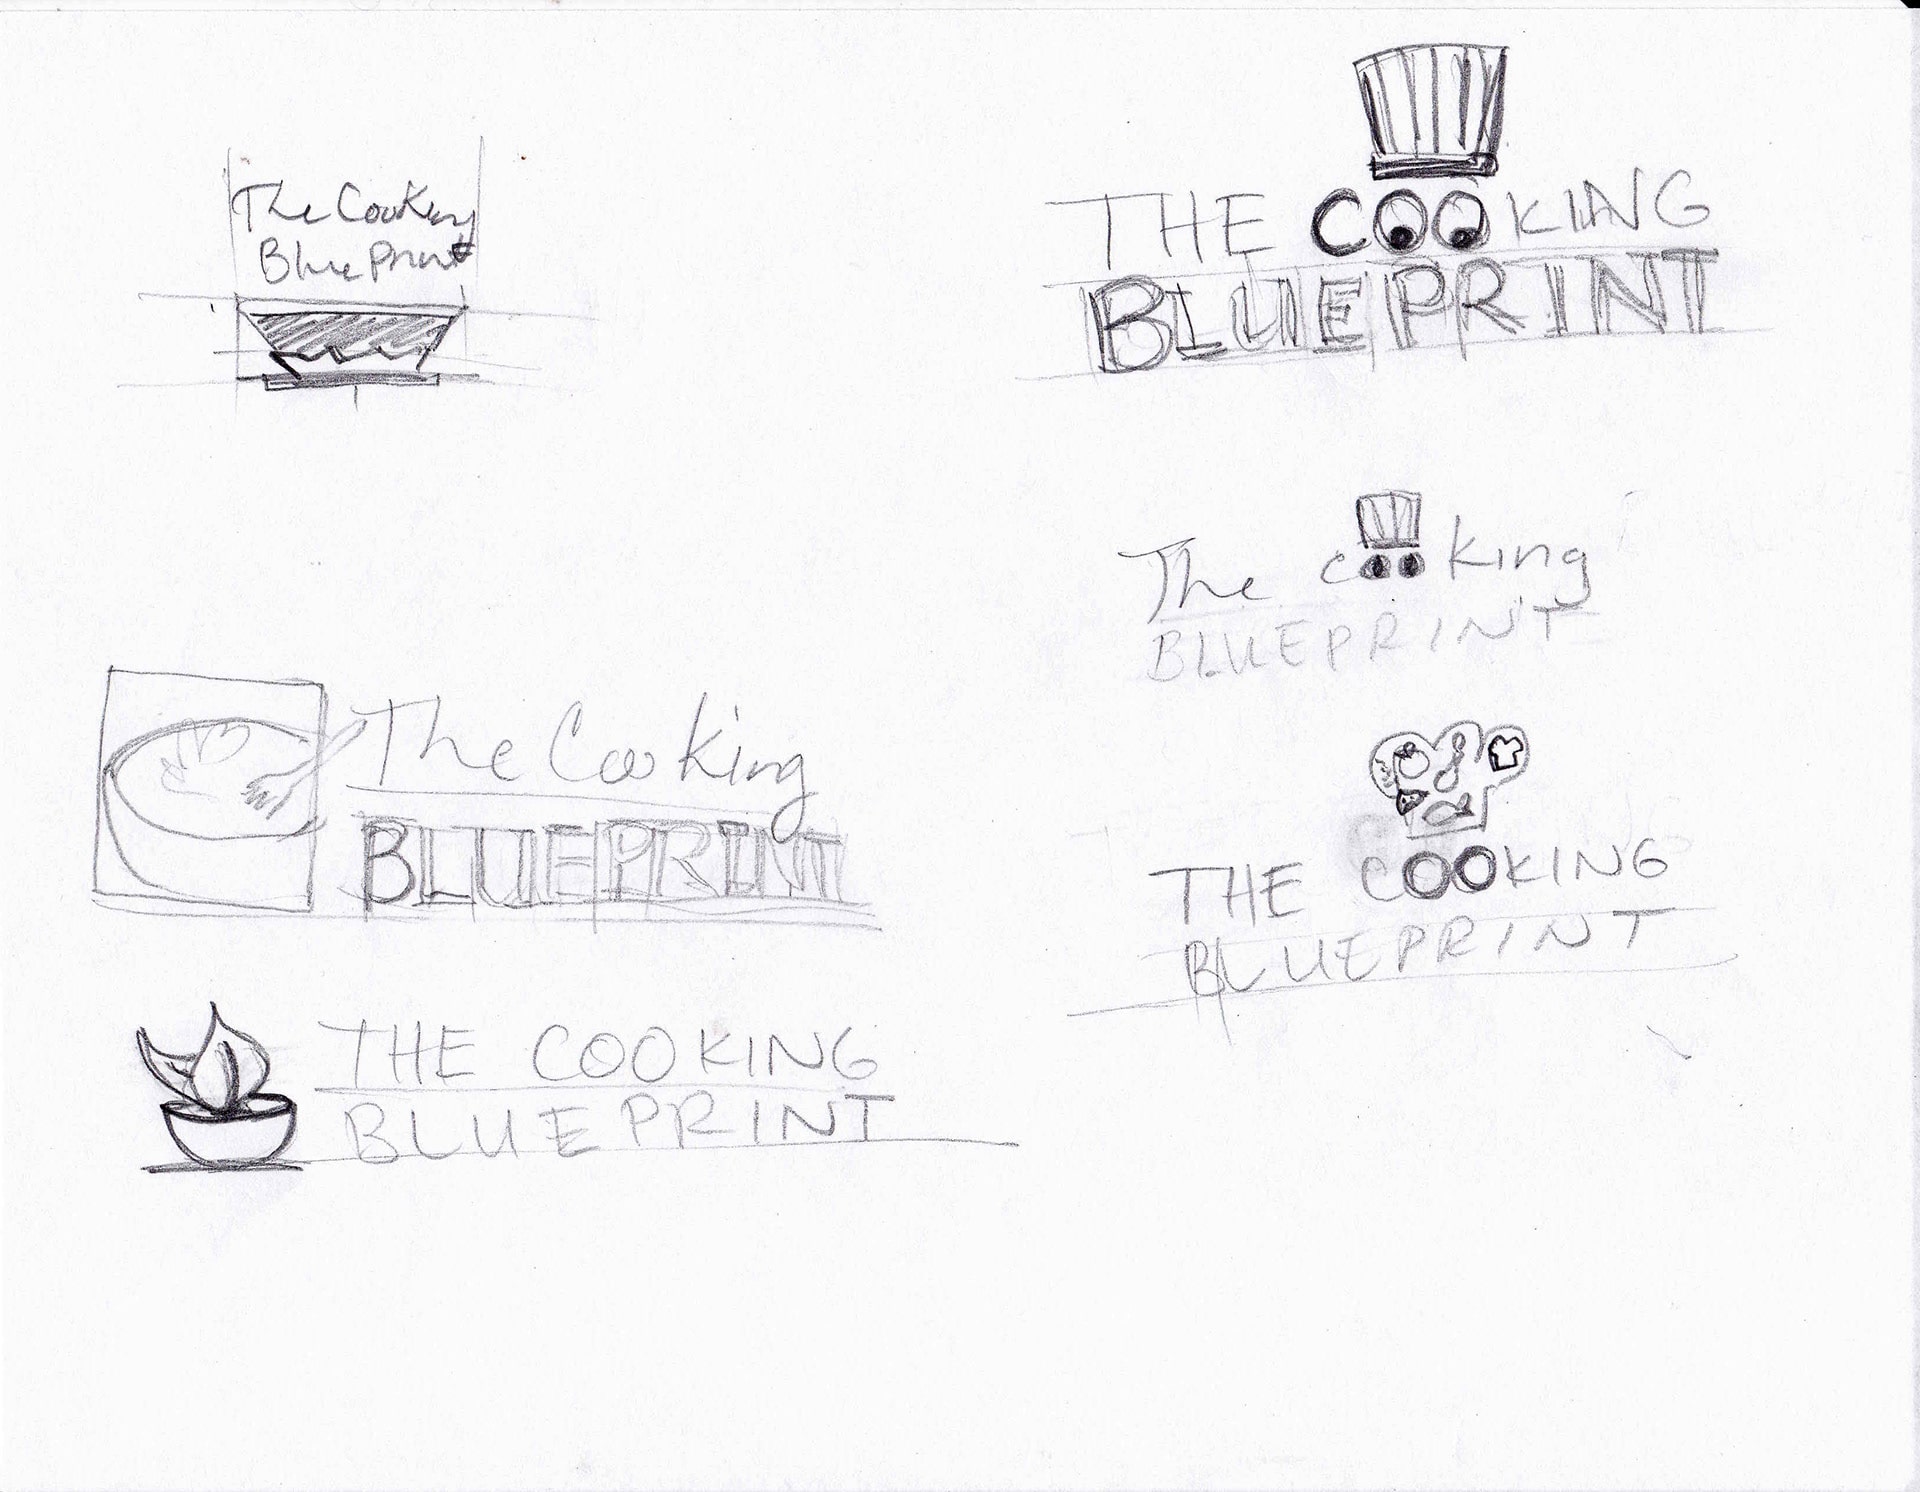 The Cooking
Blue Print
THE COOKING
BLUEPRINT
The cooking
BLUEPRINT
The Cooking
BLUEPRINT
THE COOKING
BLUEPRINT
THE COOKING
BLUEPRINT